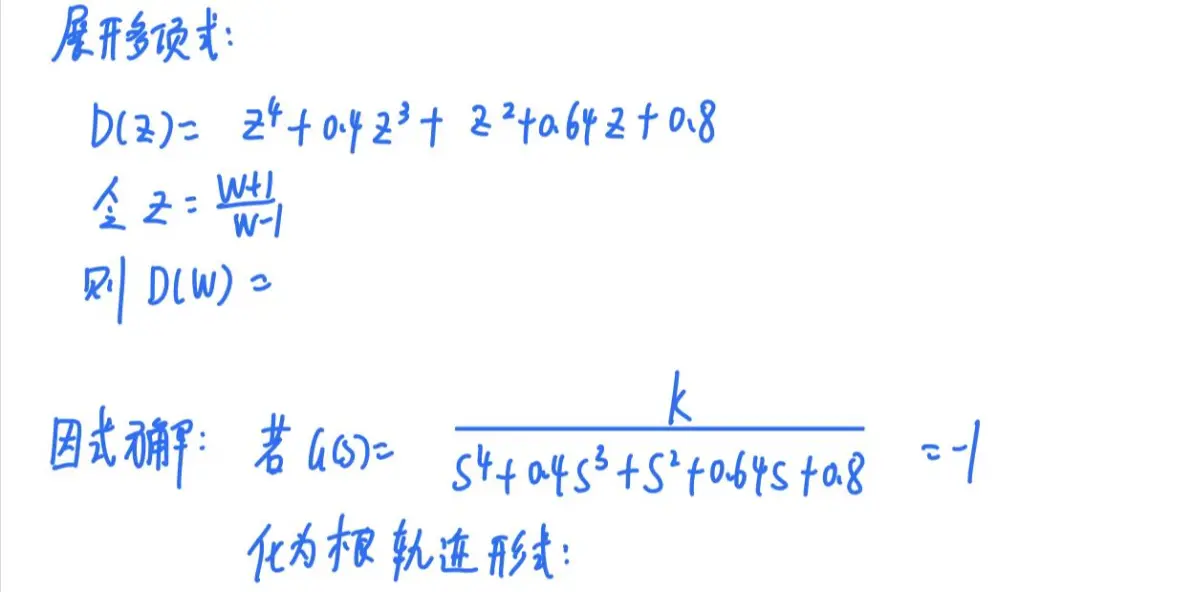 展开多项式:
D(z)= z⁴+0.4z³+ z²+0.64z+0.8
令 z=\frac{w+1}{w-1}
则 D(w)=
因式分解: 若 G(s)= \frac{k}{s⁴+0.4s³+s²+0.64s+0.8} =-1
化为根轨迹形式: